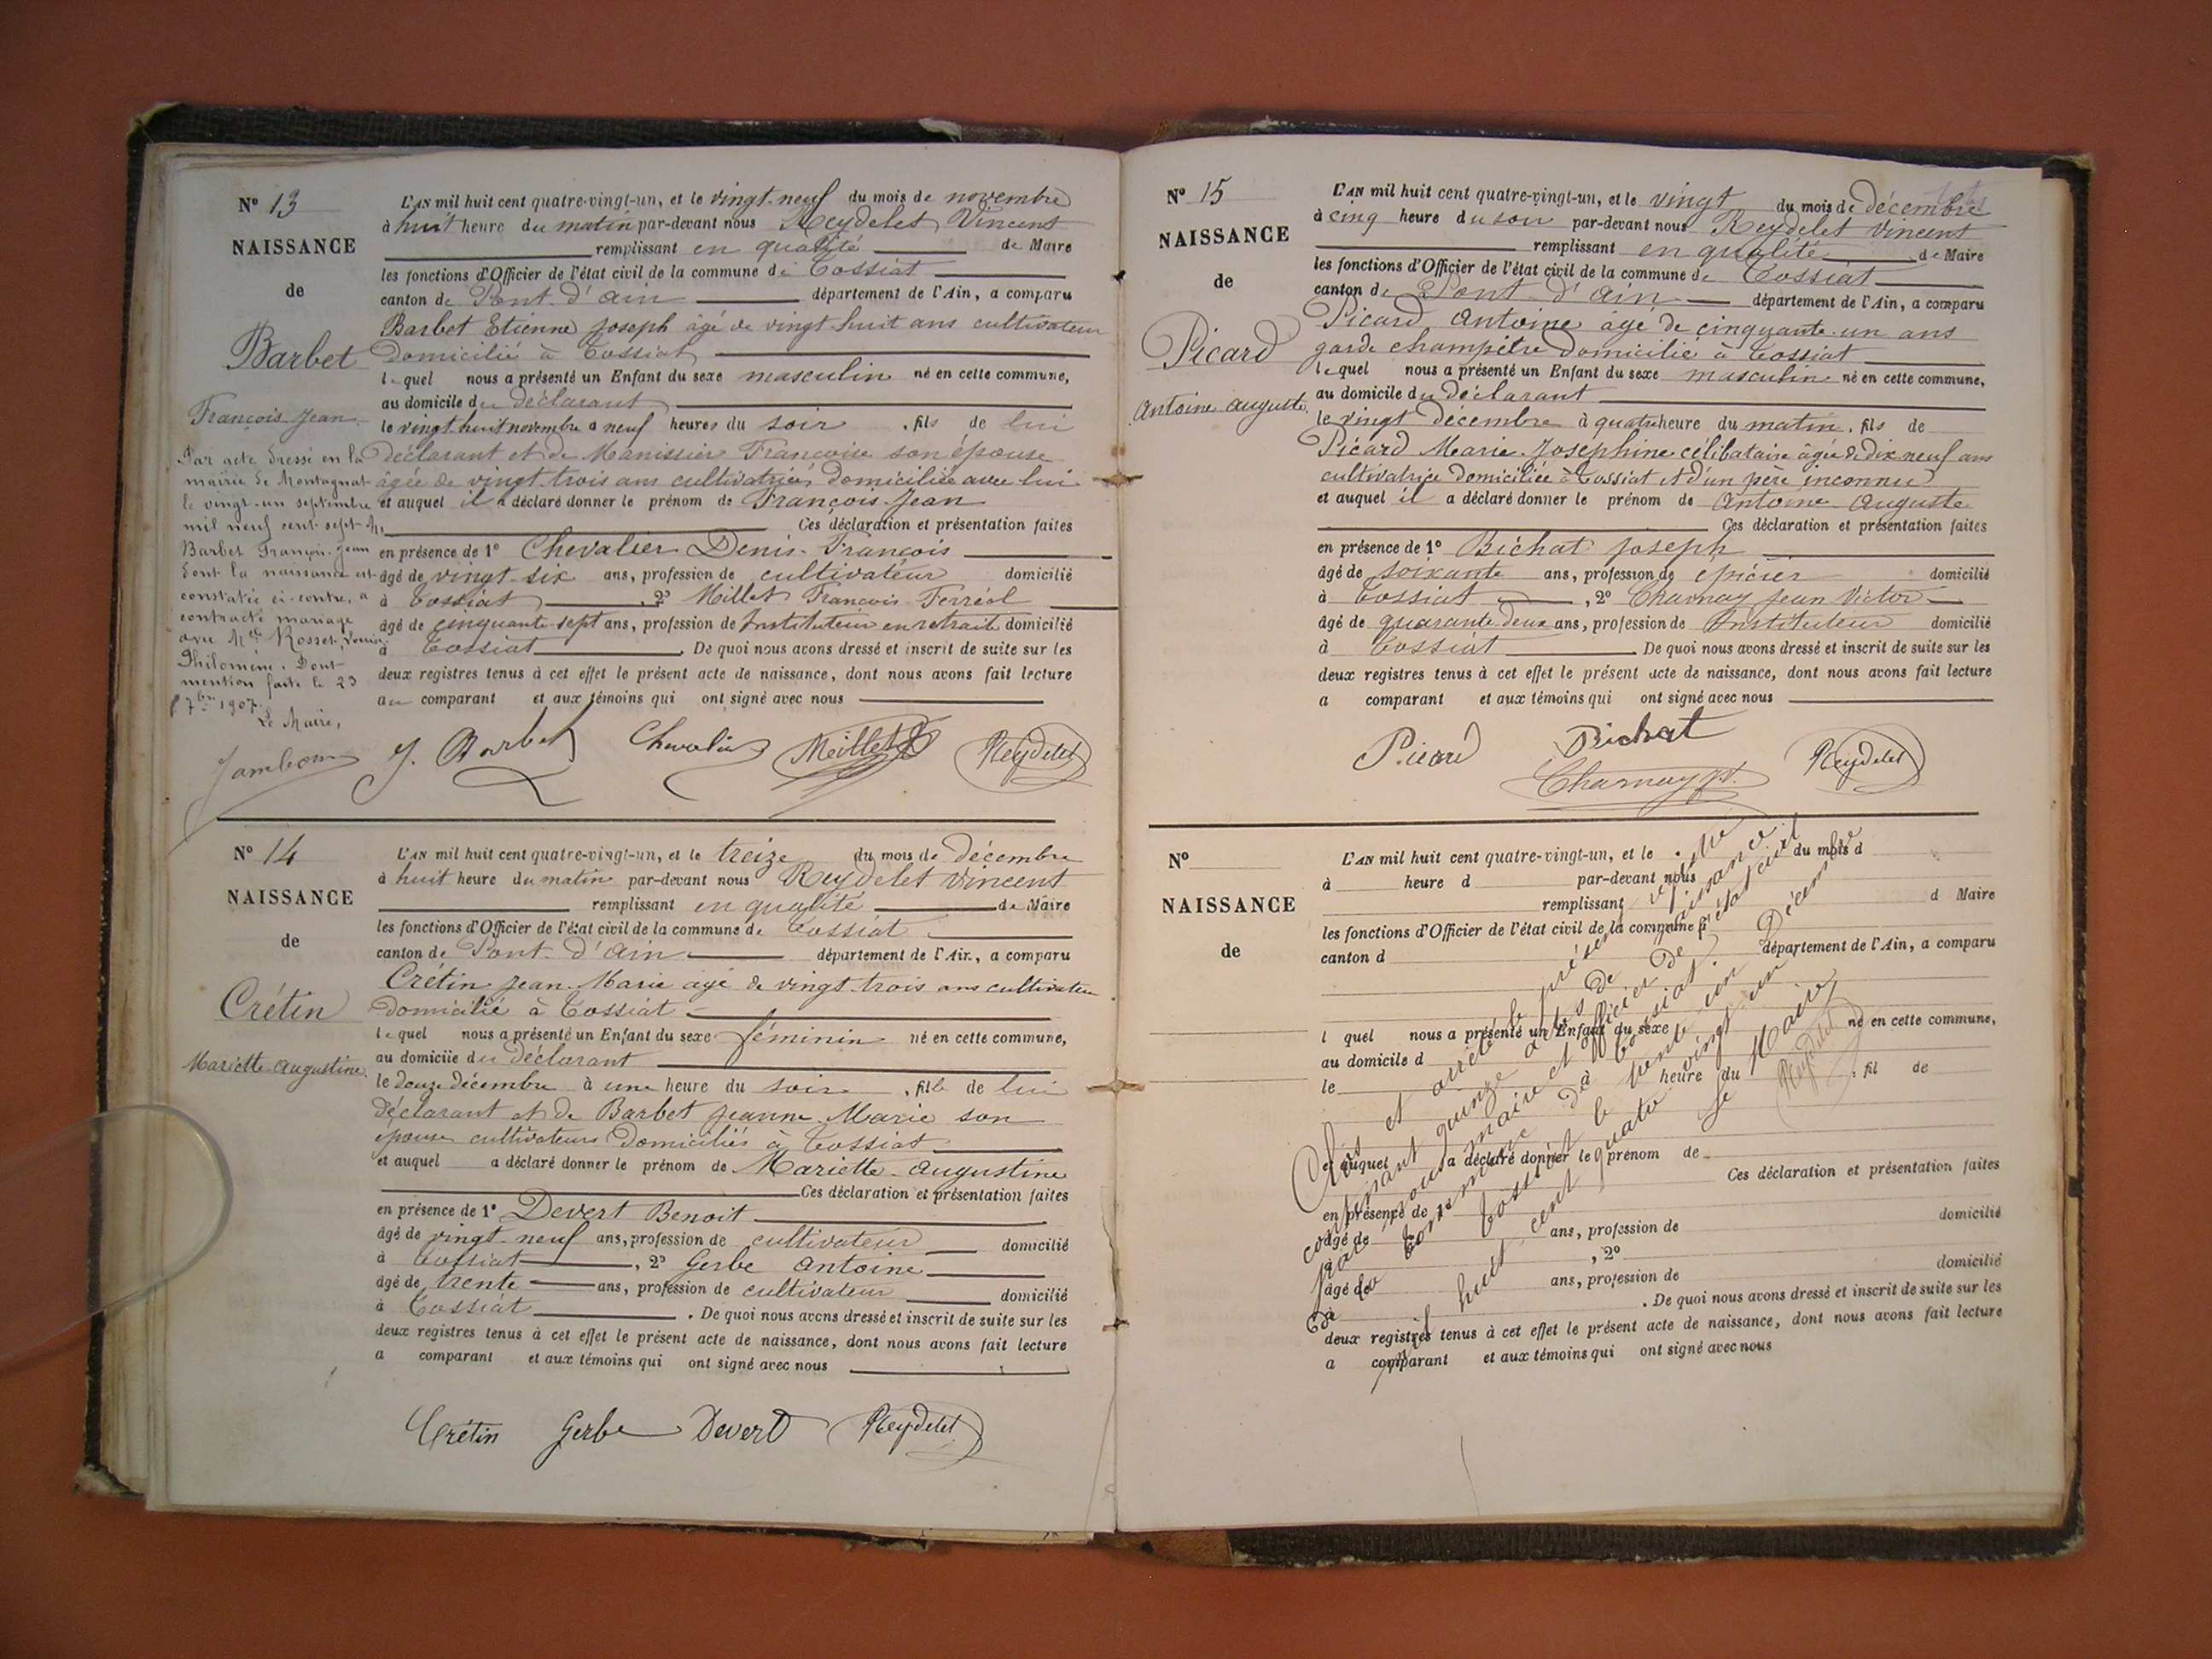 Nº 13
NAISSANCE
de
Barbet
François Jean
Par acte dressé en la
mairie de Montagnat
le vingt-un septembre
mil neuf cent sept
Barbet François-Jean
dont la naissance est
constatée ci-contre, a
contracté mariage
avec Mlle Rosset, Louise
Philomène. Dont
mention faite le 23
7bre 1907.
Le Maire,
L'AN mil huit cent quatre-vingt-un, et le vingt-neuf du mois de novembre
à huit heure du matin par-devant nous Reydelet Vincent
remplissant en qualité de Maire
les fonctions d'Officier de l'état civil de la commune de Tossiat
canton de Pont-d'Ain département de l'Ain, a comparu
Barbet Etienne Joseph âgé de vingt huit ans cultivateur
domicilié à Tossiat
lequel nous a présenté un Enfant du sexe masculin né en cette commune,
au domicile du déclarant
le vingt-huit novembre à neuf heures du soir, fils de lui
déclarant et de Manissier Françoise son épouse
âgée de vingt-trois ans cultivatrice domiciliée avec lui
et auquel il a déclaré donner le prénom de François Jean
Ces déclaration et présentation faites
en présence de 1º Chevalier Denis-François
âgé de vingt-six ans, profession de cultivateur domicilié
à Tossiat, 2º Millet François Ferréol
âgé de cinquante-sept ans, profession de Instituteur en retraite domicilié
à Tossiat. De quoi nous avons dressé et inscrit de suite sur les
deux registres tenus à cet effet le présent acte de naissance, dont nous avons fait lecture
au comparant et aux témoins qui ont signé avec nous
J. Barbet Chevalier Meillet Reydelet
Nº 14
NAISSANCE
de
Crétin
Mariette Augustine
L'AN mil huit cent quatre-vingt-un, et le treize du mois de décembre
à huit heure du matin par-devant nous Reydelet Vincent
remplissant en qualité de Maire
les fonctions d'Officier de l'état civil de la commune de Tossiat
canton de Pont-d'Ain département de l'Ain, a comparu
Crétin Jean-Marie âgé de vingt-trois ans cultivateur
domicilié à Tossiat
lequel nous a présenté un Enfant du sexe féminin né en cette commune,
au domicile du déclarant
le douze décembre à une heure du soir, fille de lui
déclarant et de Barbet Jeanne Marie son
épouse cultivateurs domiciliés à Tossiat
et auquel a déclaré donner le prénom de Mariette-Augustine
Ces déclaration et présentation faites
en présence de 1º Devert Benoit
âgé de vingt-neuf ans, profession de cultivateur domicilié
à Tossiat, 2º Gerbe Antoine
âgé de trente ans, profession de cultivateur domicilié
à Tossiat. De quoi nous avons dressé et inscrit de suite sur les
deux registres tenus à cet effet le présent acte de naissance, dont nous avons fait lecture
a comparant et aux témoins qui ont signé avec nous
Crétin Gerbe Devert Reydelet
Nº 15
NAISSANCE
de
Picard
Antoine Auguste
L'AN mil huit cent quatre-vingt-un, et le vingt du mois de décembre
à cinq heure du soir par-devant nous Reydelet Vincent
remplissant en qualité de Maire
les fonctions d'Officier de l'état civil de la commune de Tossiat
canton de Pont-d'Ain département de l'Ain, a comparu
Picard Antoine âgé de cinquante-un ans
garde champêtre domicilié à Tossiat
lequel nous a présenté un Enfant du sexe masculin né en cette commune,
au domicile du déclarant
le vingt décembre à quatre heure du matin, fils de
Picard Marie-Josephine célibataire âgée de dix-neuf ans
cultivatrice domiciliée à Tossiat et d'un père inconnu
et auquel il a déclaré donner le prénom de Antoine-Auguste
Ces déclaration et présentation faites
en présence de 1º Bichat Joseph
âgé de soixante ans, profession de épicier domicilié
à Tossiat, 2º Charnay Jean Victor
âgé de quarante-deux ans, profession de Instituteur domicilié
à Tossiat. De quoi nous avons dressé et inscrit de suite sur les
deux registres tenus à cet effet le présent acte de naissance, dont nous avons fait lecture
a comparant et aux témoins qui ont signé avec nous
Picard Bichat
Charnay Reydelet
Nº
NAISSANCE
de
L'AN mil huit cent quatre-vingt-un, et le du mois d
à heure d par-devant nous
remplissant d Maire
les fonctions d'Officier de l'état civil de la commune d
canton d département de l'Ain, a comparu
l quel nous a présenté un Enfant du sexe né en cette commune,
au domicile d
le à heure du, fil de
et auquel a déclaré donner le prénom de
Ces déclaration et présentation faites
en présence de 1º
âgé de ans, profession de domicilié
à, 2º
âgé de ans, profession de domicilié
à. De quoi nous avons dressé et inscrit de suite sur les
deux registres tenus à cet effet le présent acte de naissance, dont nous avons fait lecture
a comparant et aux témoins qui ont signé avec nous
Clos et arrêté le présent registre
contenant quinze actes de naissance
par nous maire et officier de l'état civil
de la commune de Tossiat.
à Tossiat le trente-un Décembre
mil huit cent quatre vingt-un
Le Maire,
Reydelet